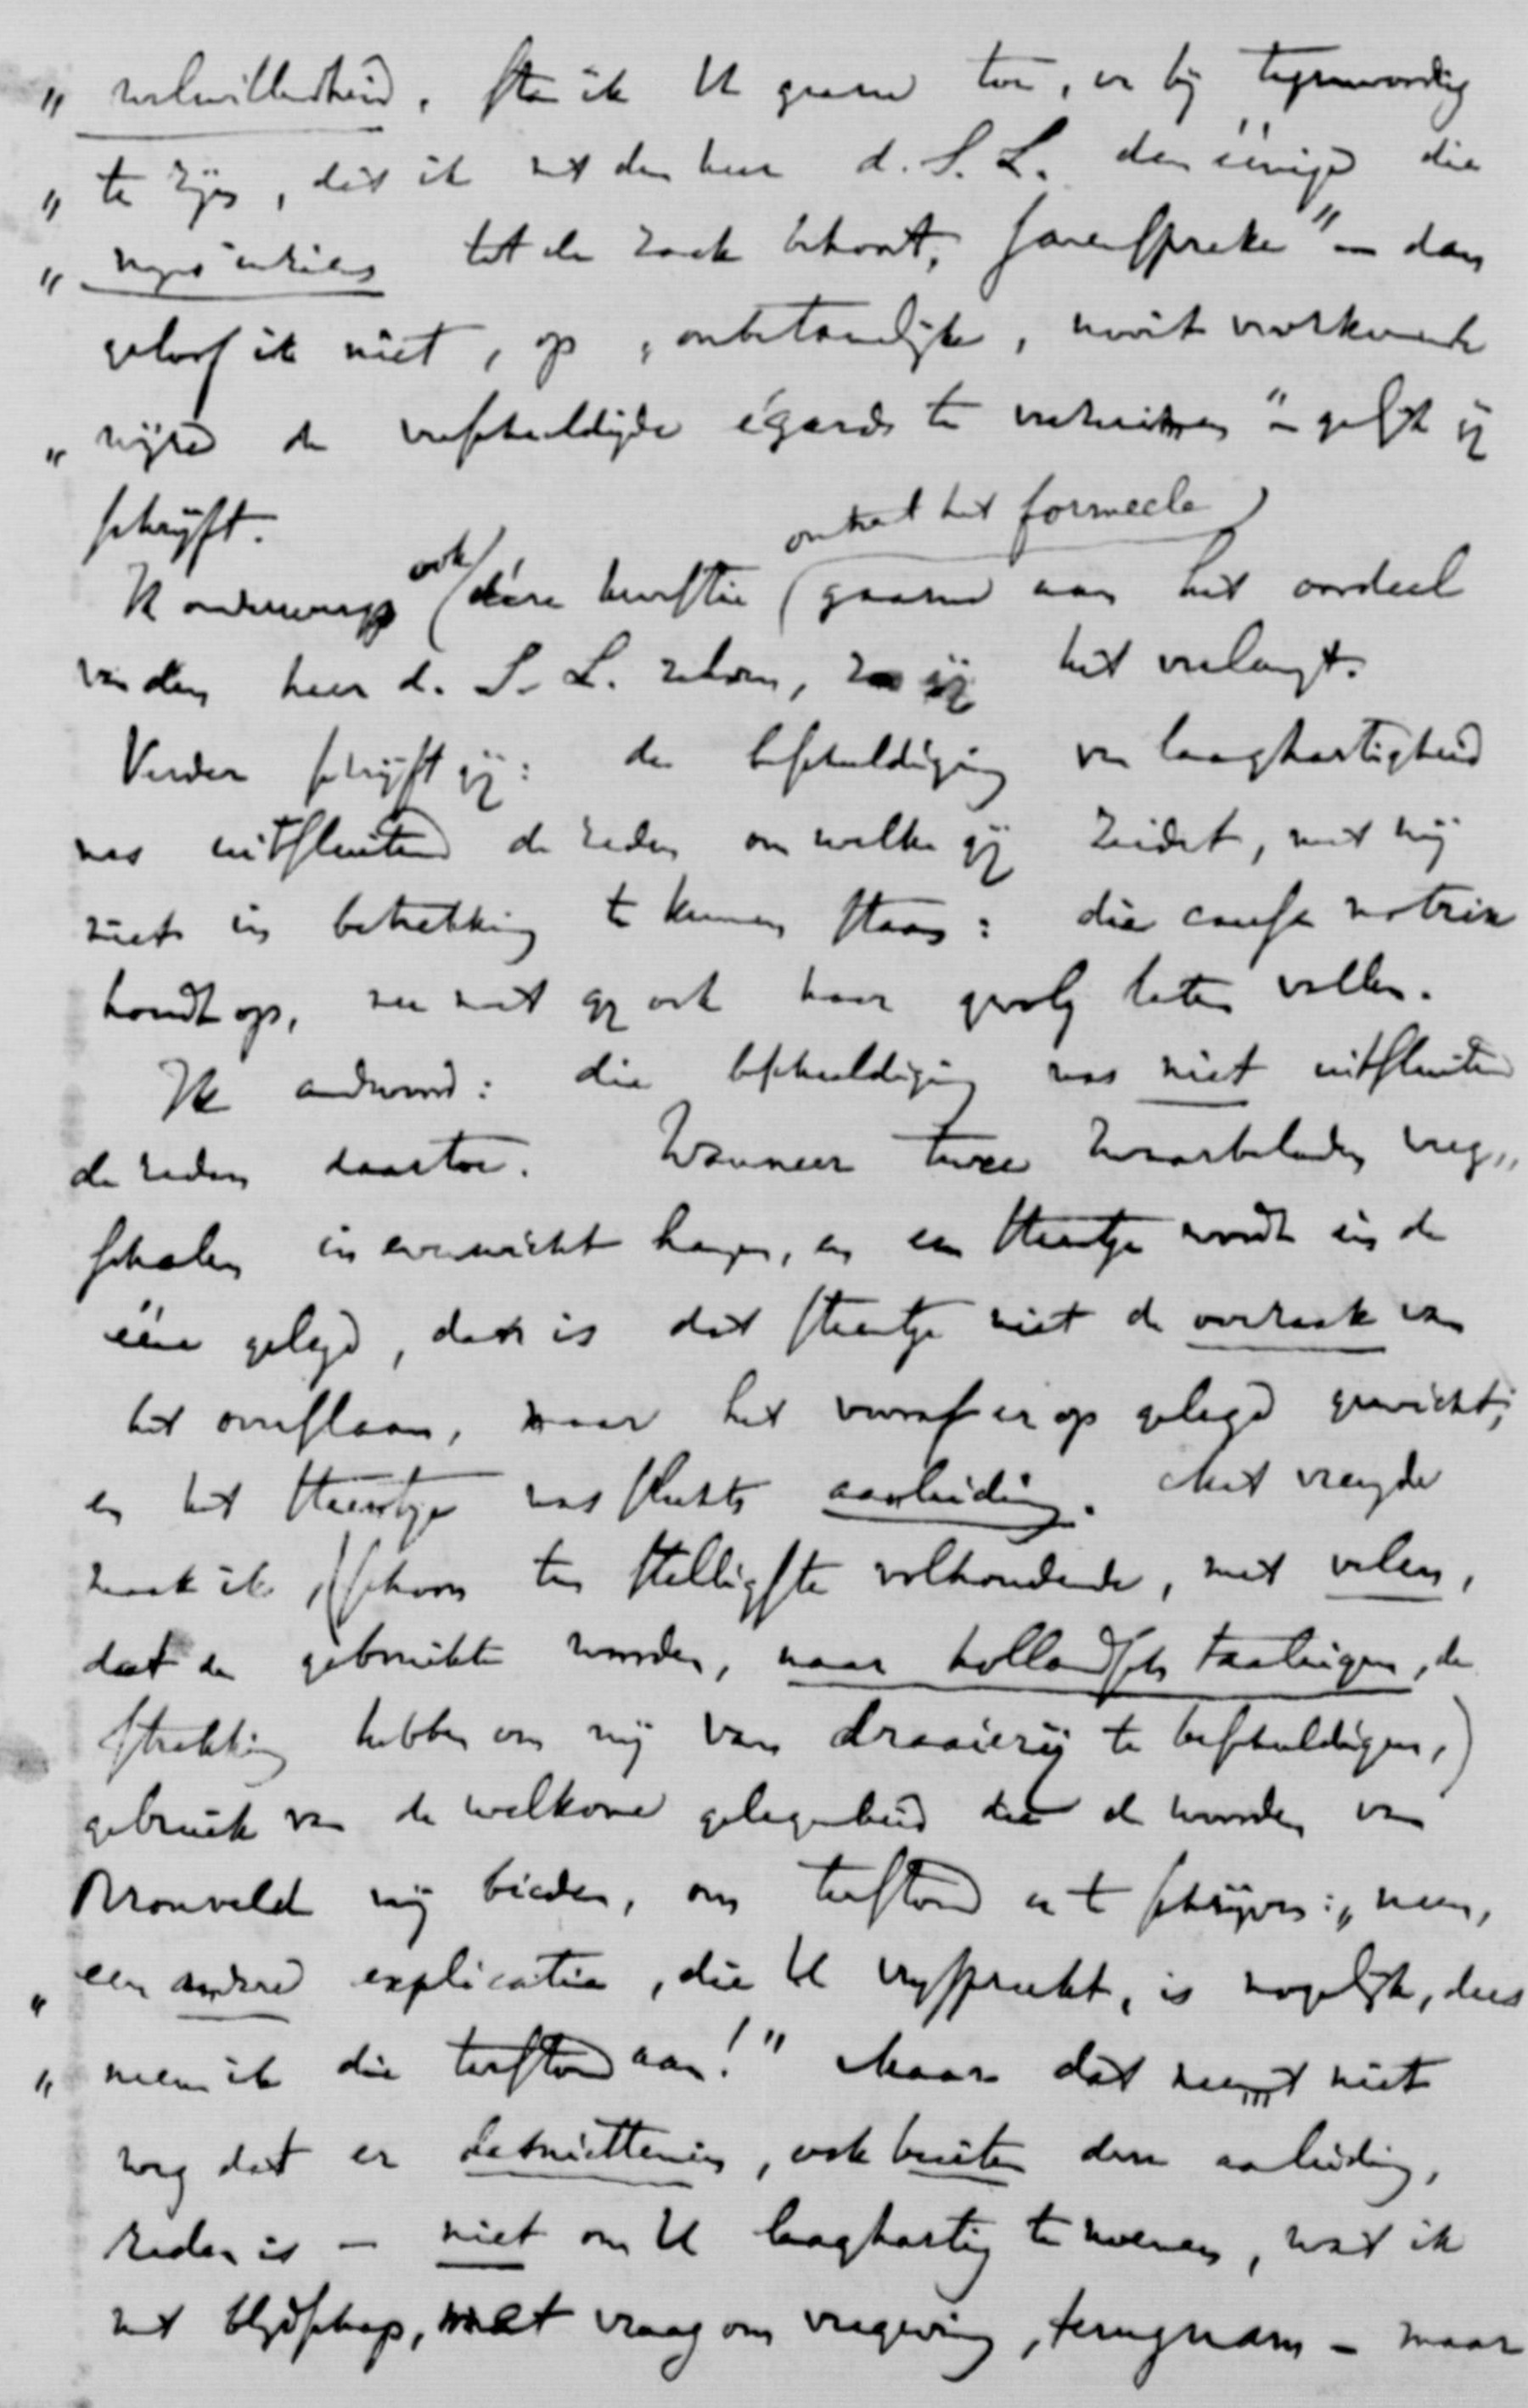 „ welwillendheid, sta ik U gaarne toe, er bij tegenwoordig
„ te zijn, dat ik met den heer d. S. L. den eenige die
„ mijns inziens tot de zaak behoort, samenspreke" — dan
geloof ik niet, op „onbetamelijke, nooit voorkomende
„ wijze de verschuldigde égards te verkrachten" — gelijk gij
schrijft.
omtrent het formeele
Ik onderwerp ook deze kwestie gaarne aan het oordeel
van den heer d. S. L. zelven, zoo gij het verlangt.
Verder schrijft gij: de beschuldiging van laaghartigheid
was uitsluitend de reden om welke gij zeidet, met mij
niet in betrekking te kunnen staan: die causa motrix
houdt op, nu moet gij ook haar gevolg laten vallen.
Ik antwoord: die beschuldiging was niet uitsluitend
de reden daartoe. Wanneer twee zwaarbeladen weeg„
schalen in evenwicht hangen, en een steentje wordt in de
ééne gelegd, dan is dat steentje niet de oorzaak van
het overslaan, maar het vooraf er op gelegd gewicht;
en het steentje was slechts aanleiding. Met vreugde
maak ik (schoon ten stelligste volhoudende, met velen,
dat de gebruikte woorden, naar hollandsch taaleigen, de
strekking hebben om mij van draaierij te beschuldigen,)
gebruik van de welkome gelegenheid die de woorden van
Bronveld mij bieden, om terstond u te schrijven: „neen,
„ een andere explicatie, die U vrijspreekt, is mogelijk, dus
„ neem ik die terstond aan!" Maar dat neemt niet
weg dat er desniettemin, ook buiten deze aanleiding,
reden is — niet om U laaghartig te noemen, wat ik
met blijdschap, met vraag om vergeving, terugnam — maar